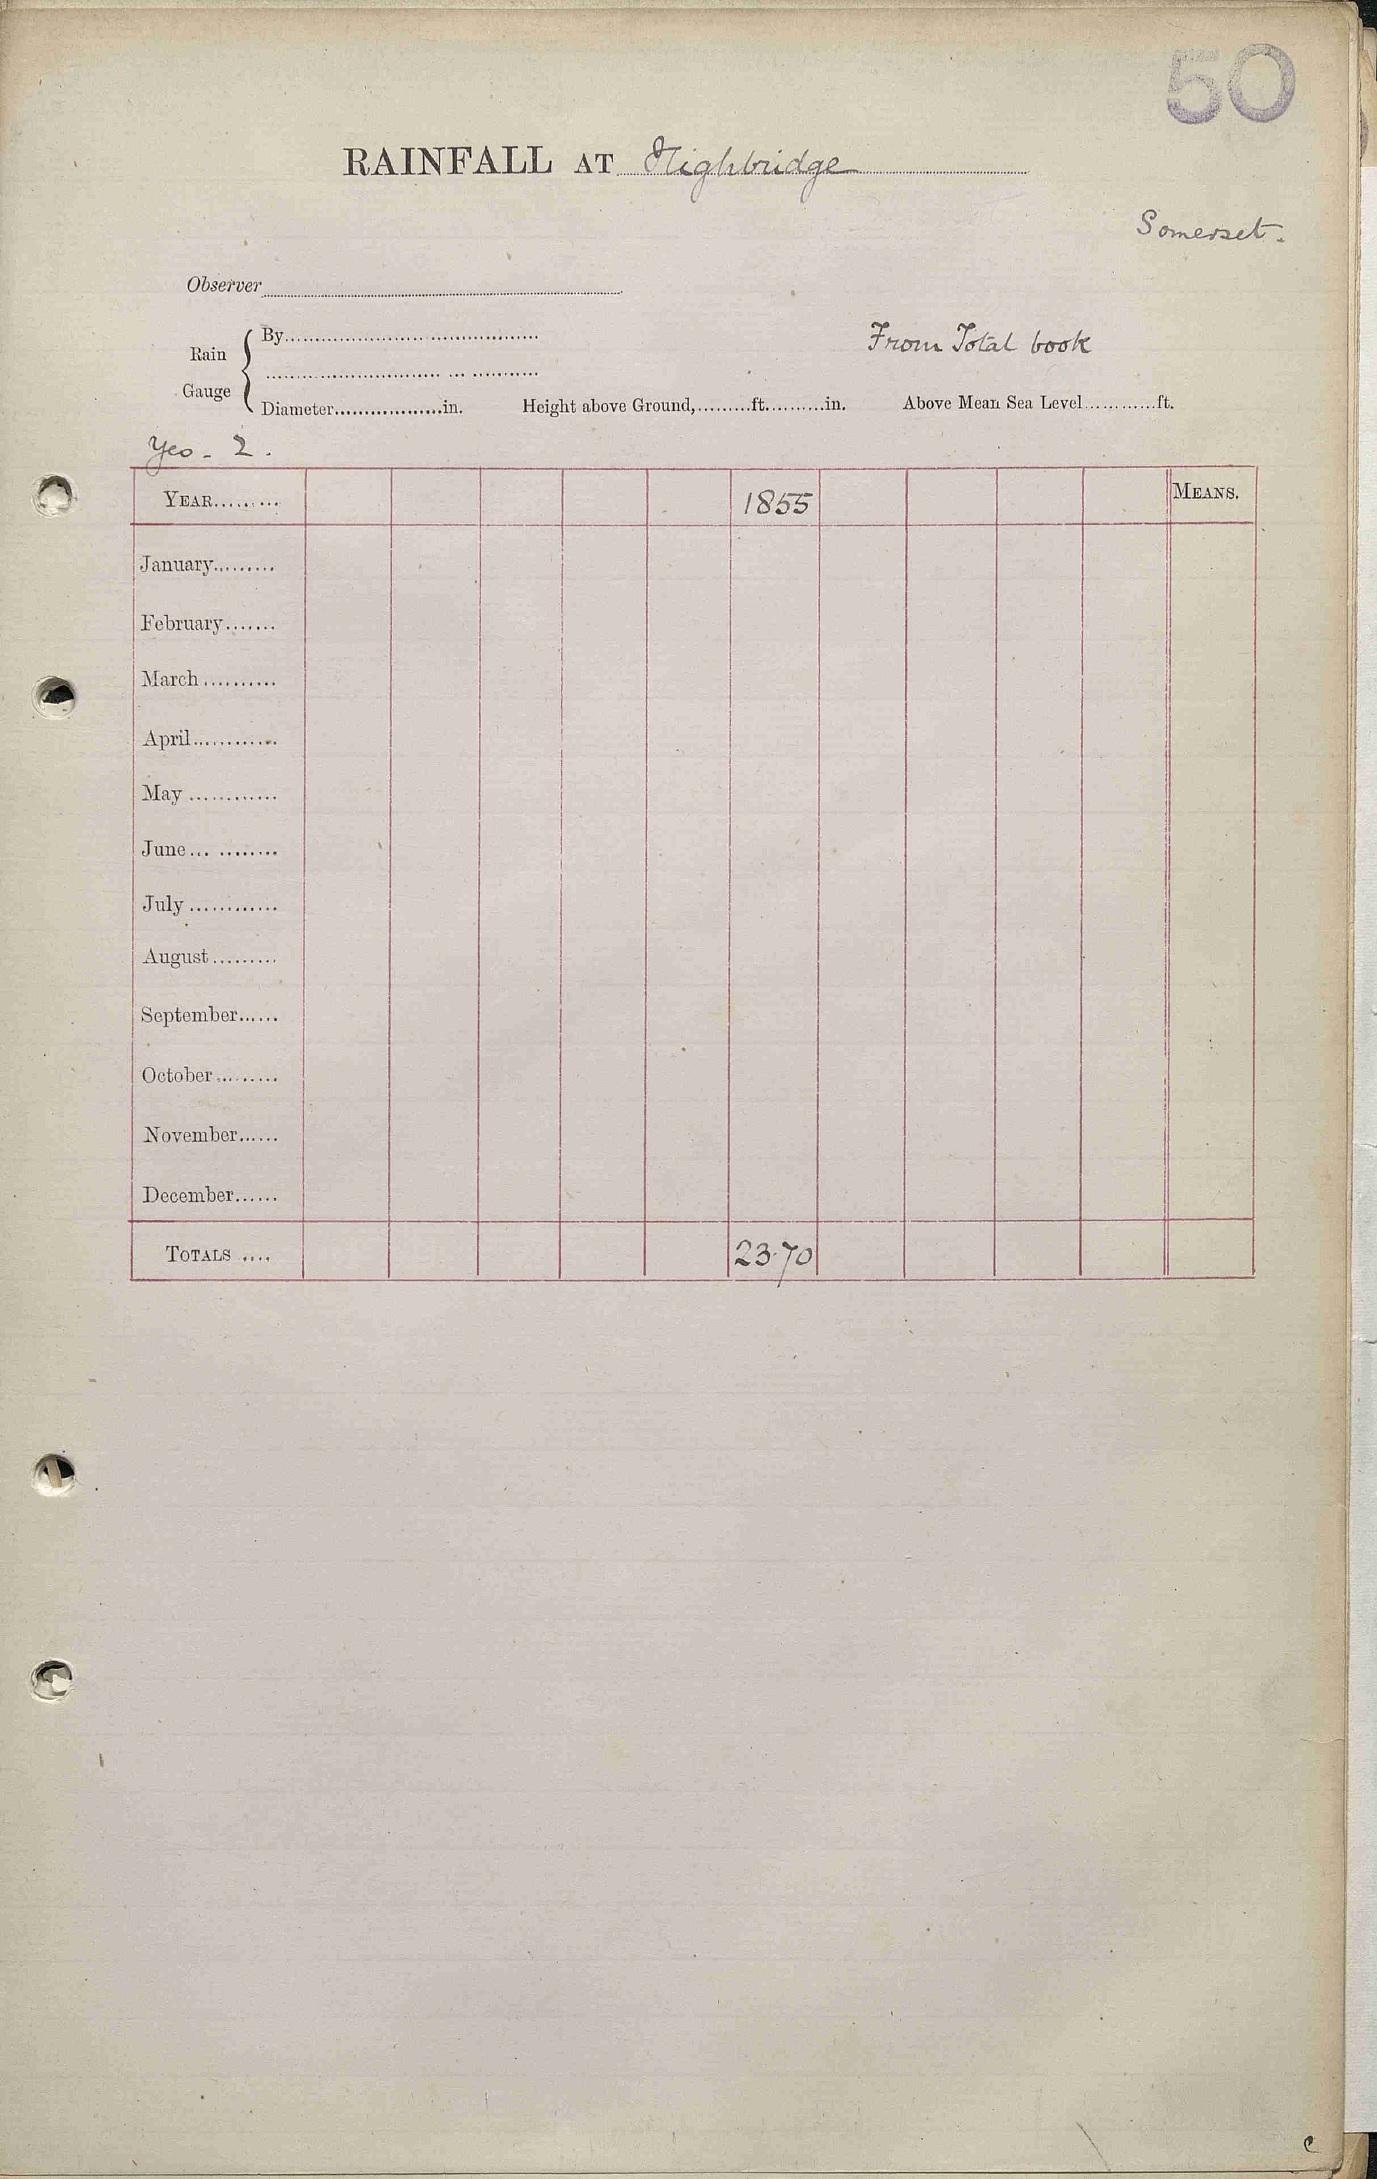 50
RAINFALL AT Highbridge
Somerset.
Observer
Rain Gauge { By
From Total book
Diameter..................in. Height above Ground,.........ft..........in. Above Mean Sea Level............ft.
Yeo. 2.
YEAR......... 1855 MEANS.
January.........
February.......
March..........
April............
May............
June... ........
July............
August.........
September......
October.........
November......
December......
TOTALS .... 23.70
e